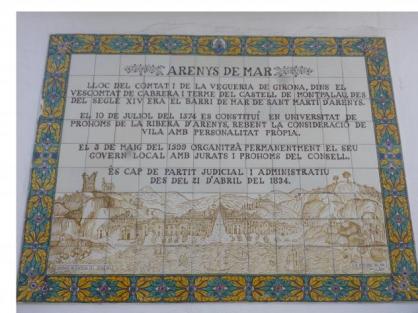 ARENYS DE MAR
LLOC DEL COMTAT I DE LA VEGUERIA DE GIRONA, DINS EL
VESCOMTAT DE CABRERA I TERME DEL CASTELL DE MONTPALAU, DES
DEL SEGLE XIV ERA EL BARRI DE MAR DE SANT MARTÍ D'ARENYS.
EL 10 DE JULIOL DEL 1574 ES CONSTITUÍ EN UNIVERSITAT DE
PROHOMS DE LA RIBERA D'ARENYS, REBENT LA CONSIDERACIÓ DE
VILA AMB PERSONALITAT PRÒPIA.
EL 3 DE MAIG DEL 1599 ORGANITZÀ PERMANENTMENT EL SEU
GOVERN LOCAL AMB JURATS I PROHOMS DEL CONSELL.
ÉS CAP DE PARTIT JUDICIAL I ADMINISTRATIU
DES DEL 21 D'ABRIL DEL 1834.